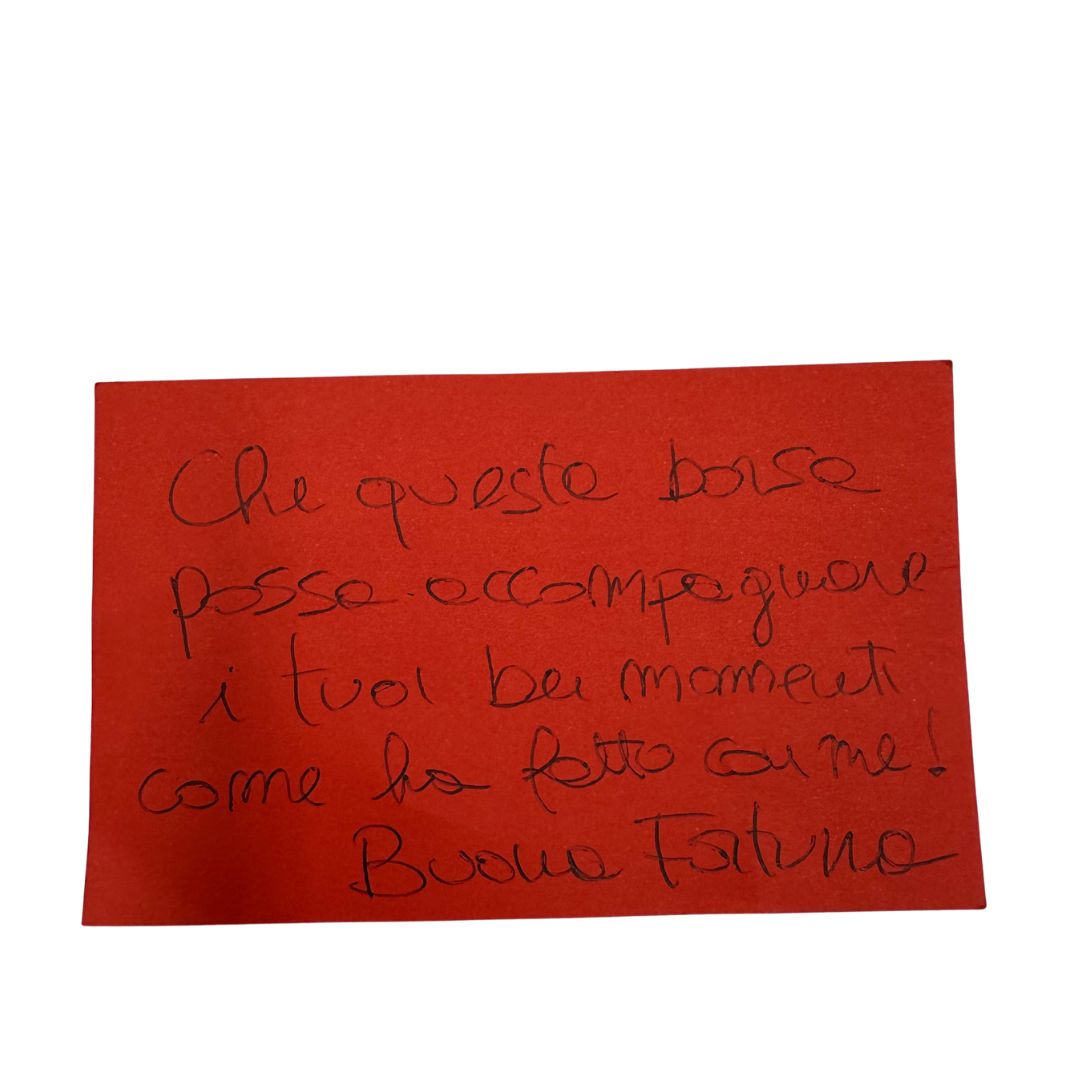 Che questa borsa
possa accompagnare
i tuoi bei momenti
come ha fatto con me!
Buona Fortuna